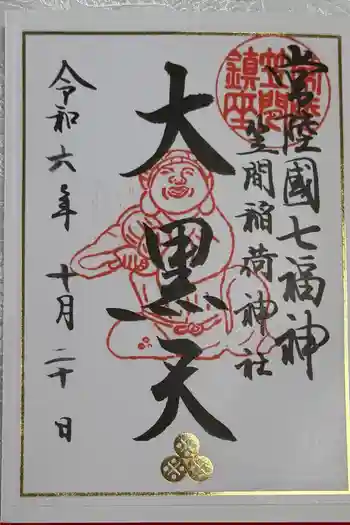 常陸國七福神
笠間稲荷神社
大黒天
令和六年十月二十日